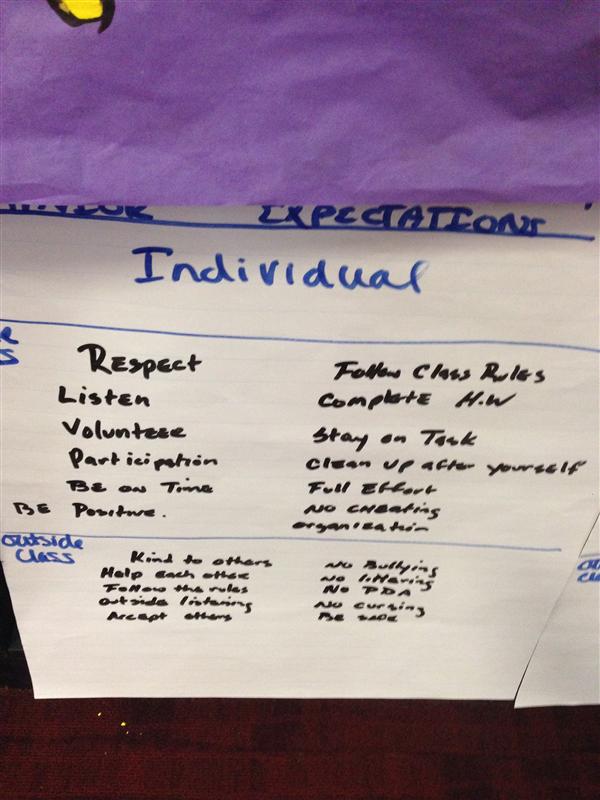 EXPECTATIONS
Individual
Respect
Listen
Volunteer
Participation
BE on Time
BE Positive.
Follow Class Rules
Complete H.W
Stay on Task
Clean up after yourself
Full Effort
NO CHEating
organization
outside
Class
Kind to others
Help Each other
Follow the rules
outside listening
Accept others
No Bullying
no littering
No PDA
No cursing
BE SAFE